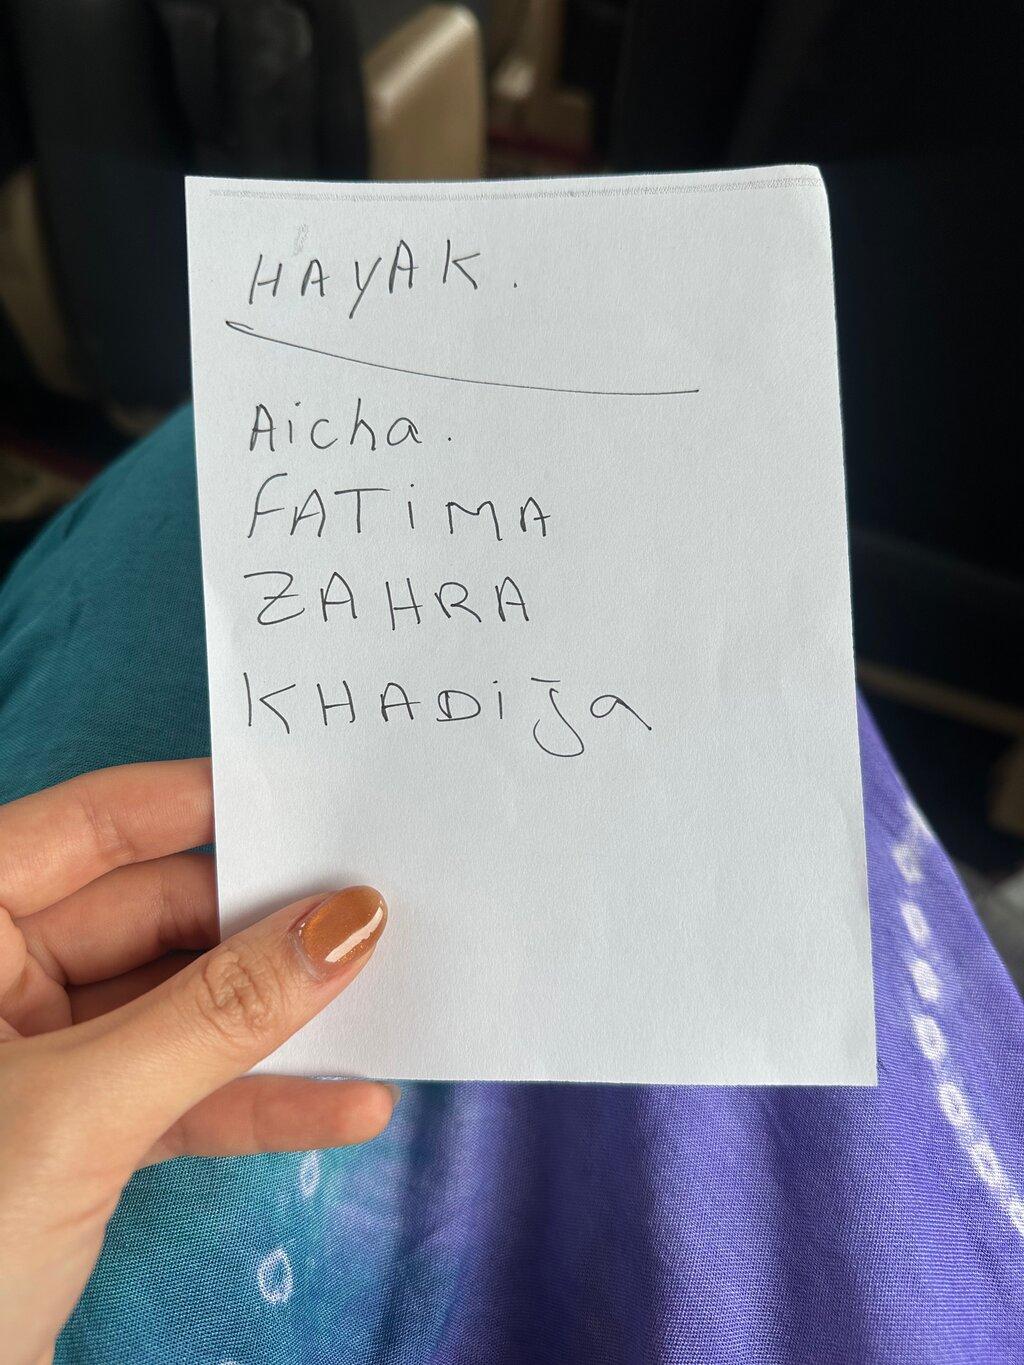 HAYAK.
Aicha.
FATiMA
ZAHRA
KHADija